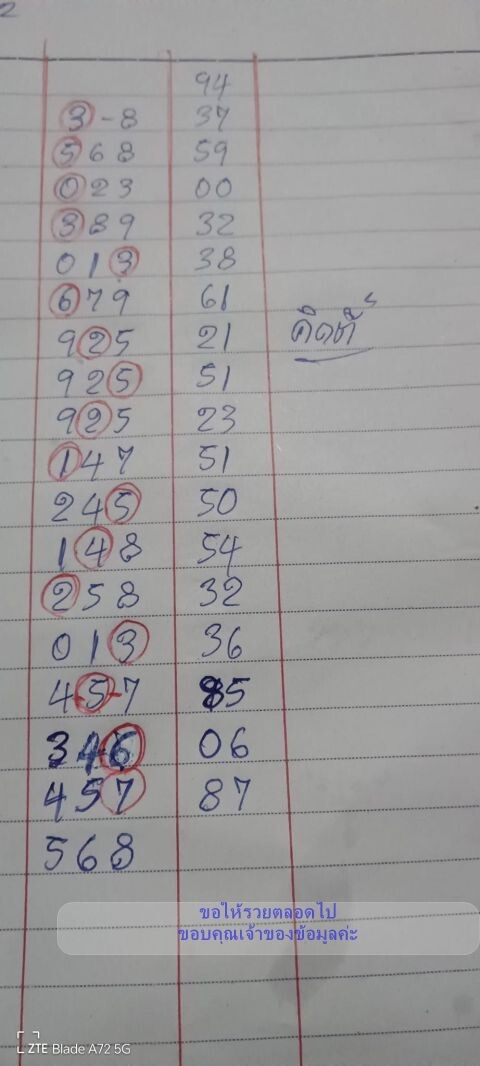 2
94
3-8 37
568 59
023 00
389 32
013 38
679 61
925 21
925 51
925 23
147 51
245 50
148 54
258 32
013 36
4-5-7 85
346 06
457 87
568
ขอให้รวยตลอดไป
ขอบคุณเจ้าของข้อมูลค่ะ
ZTE Blade A72 5G